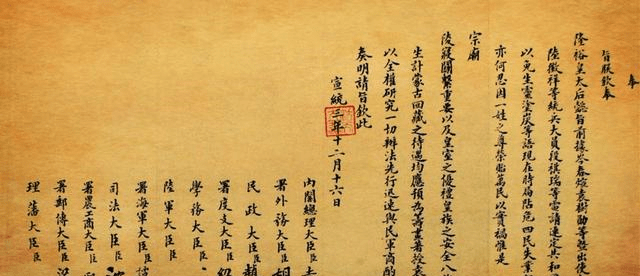 奉
旨朕欽奉
隆裕皇太后懿旨前據岑春煊袁樹勛等暨出使
陸徵祥等統兵大員段祺瑞等電請速定共和
以免生靈塗炭等語現在時局阽危四民失業
亦何忍因一姓之尊榮貽萬民以實禍惟是
宗廟
陵寢關繫重要以及皇室之優禮皇族之安全八
生計蒙古回藏之待遇均應預為籌畫著授袁
以全權研究一切辦法先行迅速與民軍商酌
奏明請旨欽此
宣統三年十二月十六日
內閣總理大臣
署外務大臣臣胡
民政大臣臣趙
署度支大臣臣紹
學務大臣臣
陸軍大臣臣
署海軍大臣臣
司法大臣臣
署農工商大臣臣
署郵傳大臣臣梁
理藩大臣臣